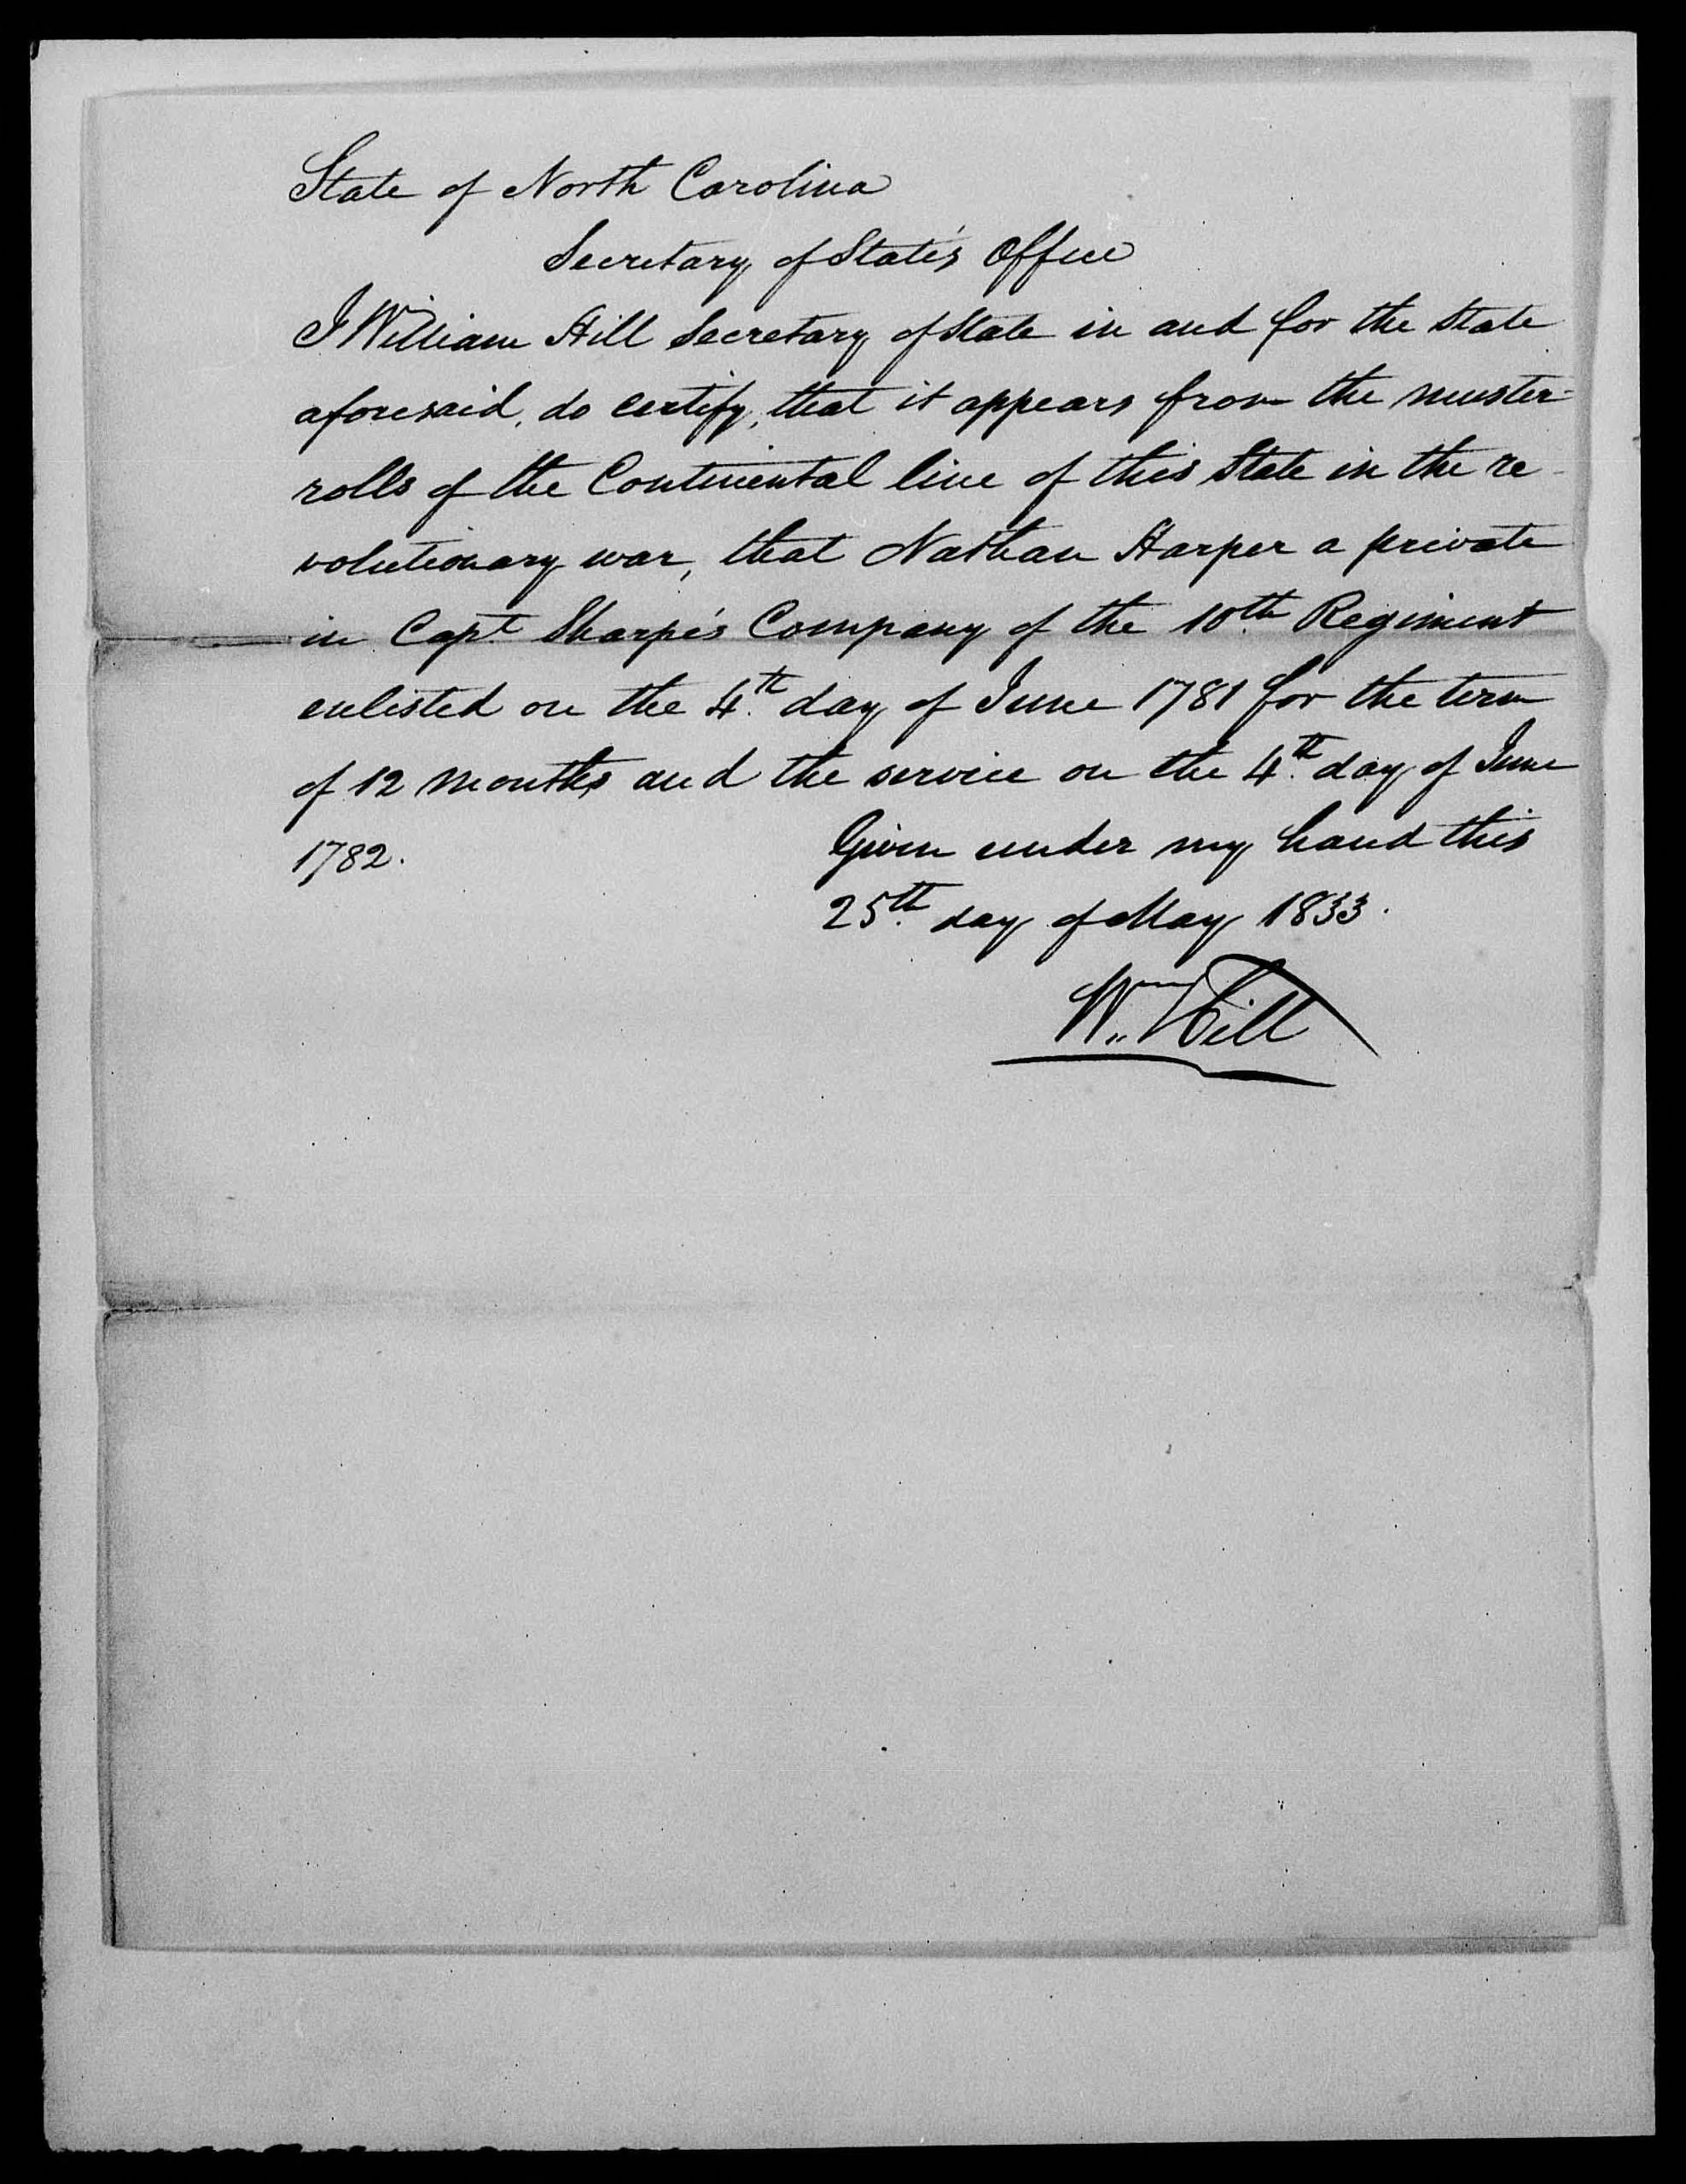 State of North Carolina
Secretary of State's Office
I William Hill Secretary of State in and for the State
aforesaid, do certify, that it appears from the muster-
rolls of the Continental line of this State in the re-
volutionary war, that Nathan Harper a private
in Capt Sharpe's Company of the 10th Regiment
enlisted on the 4th day of June 1781 for the term
of 12 months and the service on the 4th day of June
1782.
Given under my hand this
25th day of May 1833.
Wm Hill